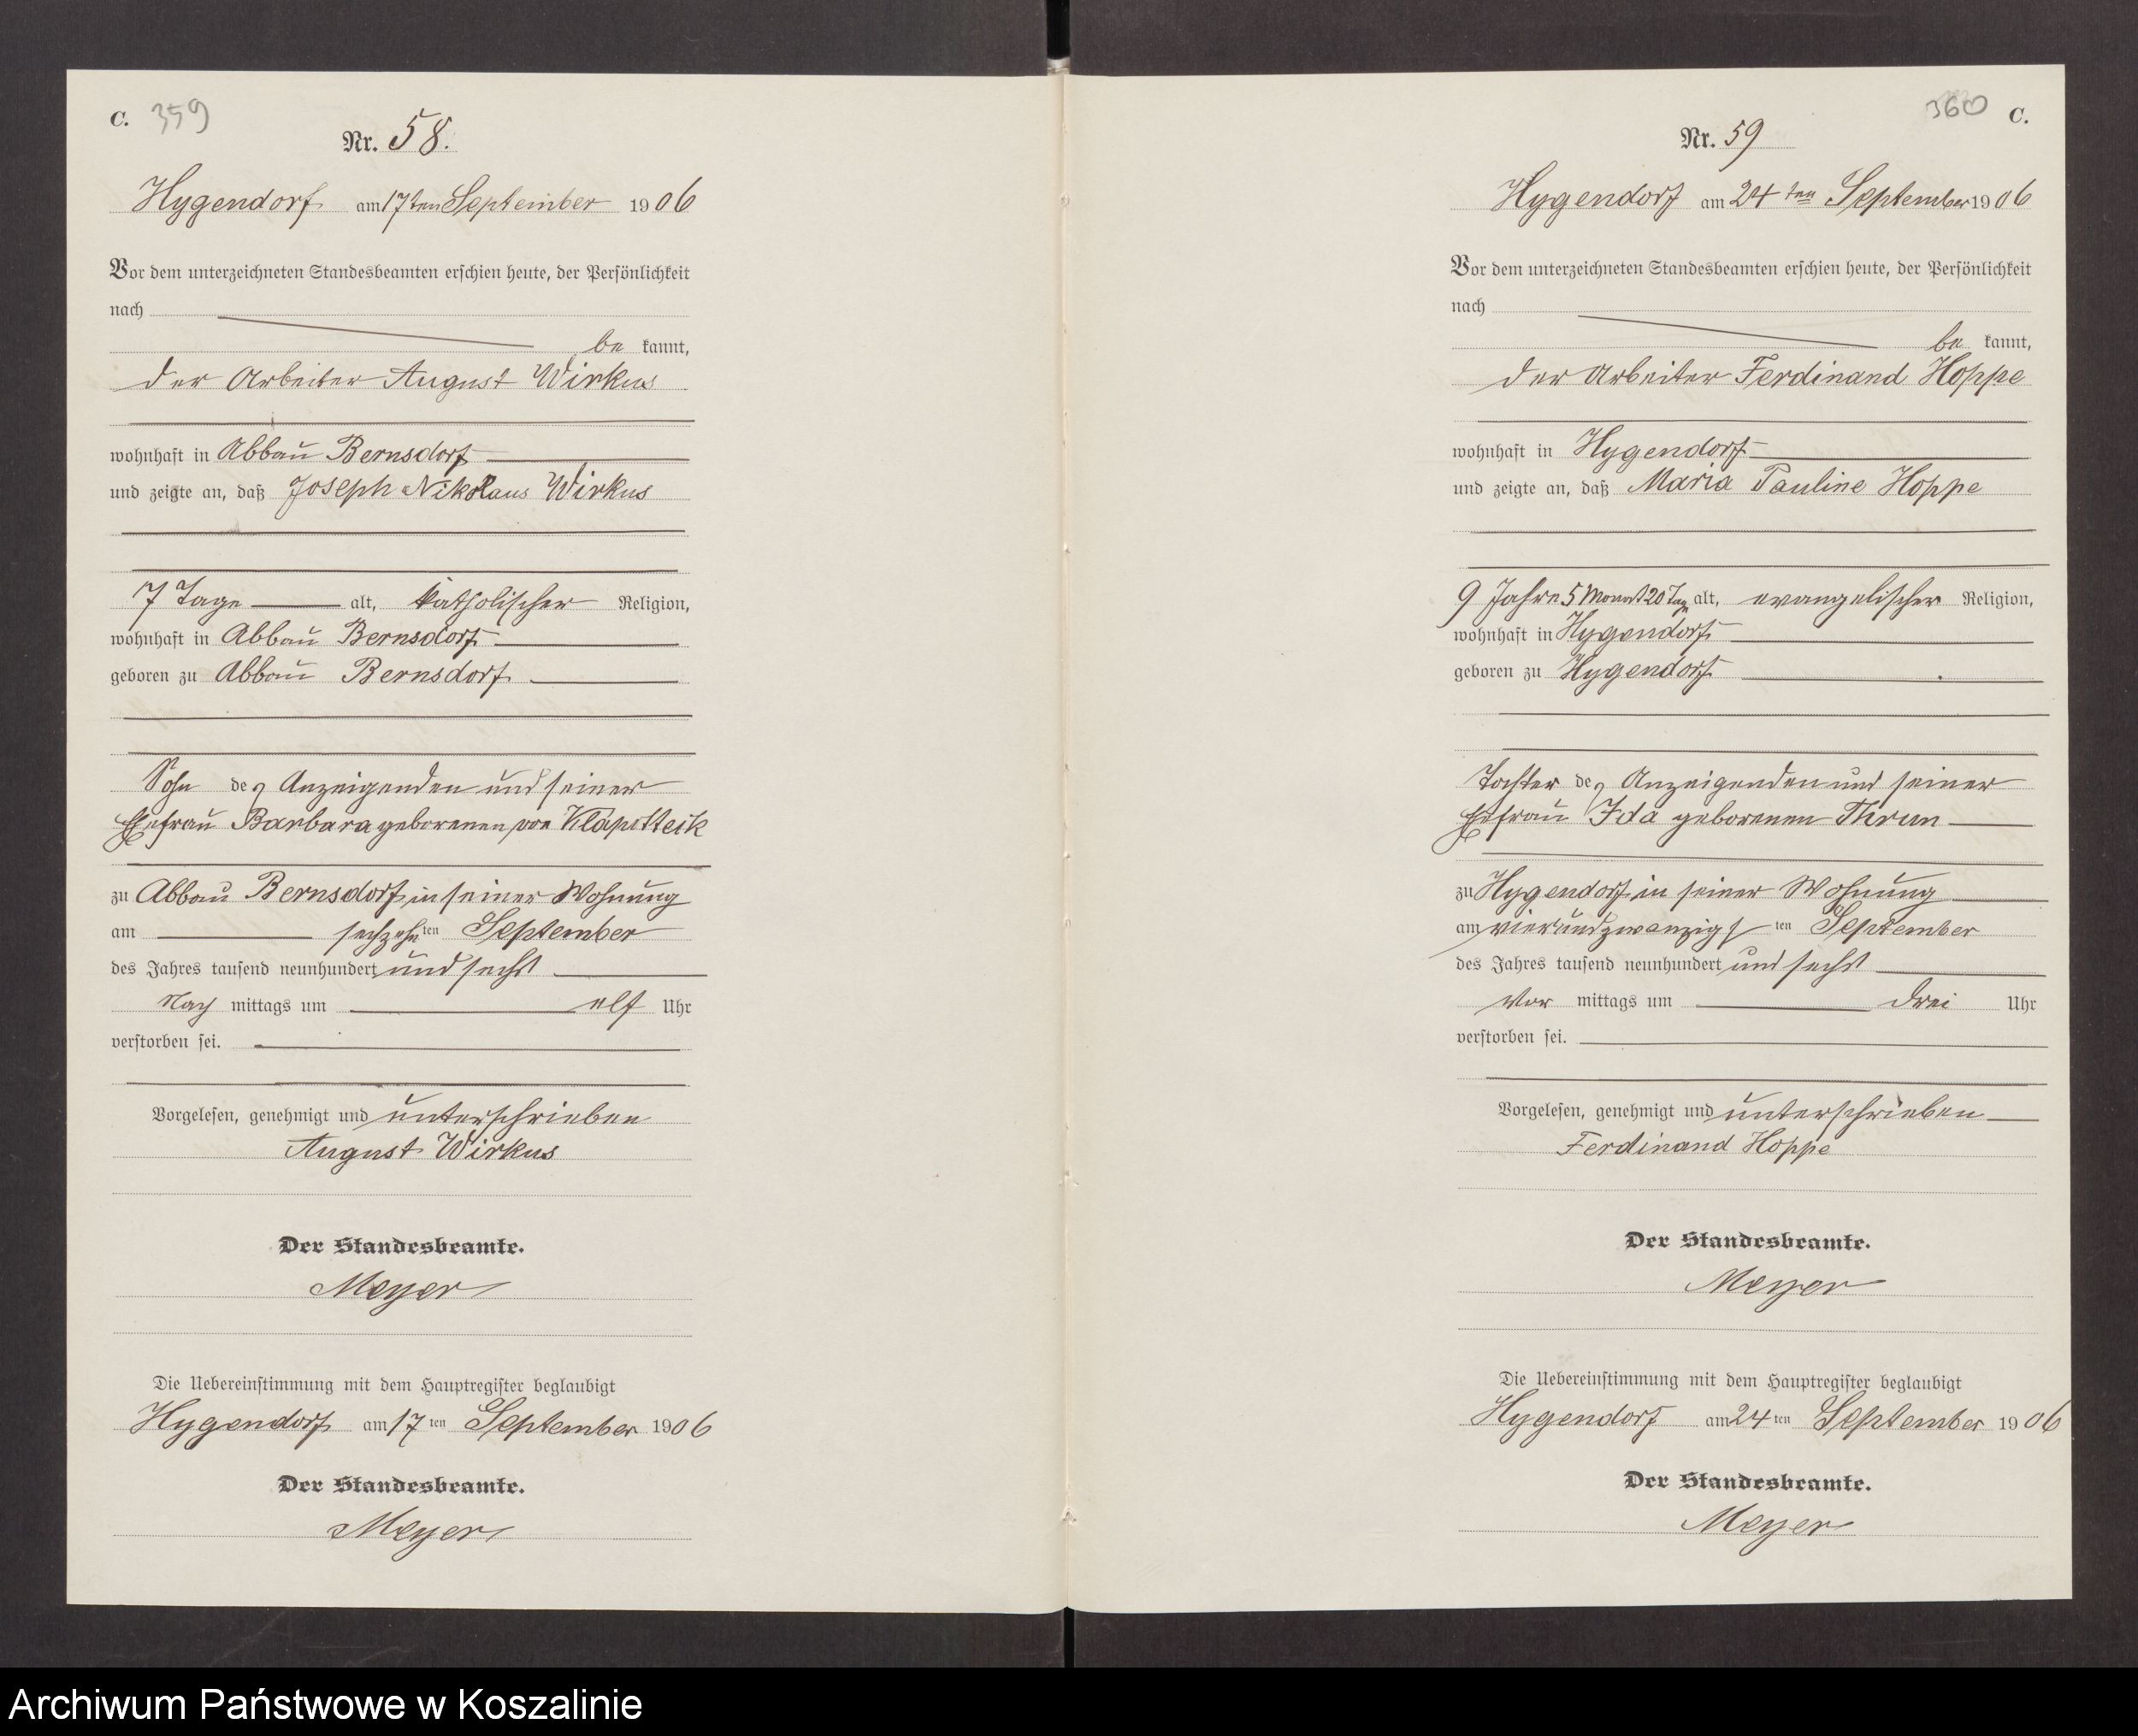 C. 359
Nr. 58.
Hygendorf am 17ten September 1906
Vor dem unterzeichneten Standesbeamten erschien heute, der Persönlichkeit
nach
be kannt,
der Arbeiter August Wirkus
wohnhaft in Abbau Bernsdorf
und zeigte an, daß Joseph Nikolaus Wirkus
7 Tage alt, katholischer Religion,
wohnhaft in Abbau Bernsdorf
geboren zu Abbau Bernsdorf
Sohn des Anzeigenden und seiner
Ehefrau Barbara geborenen von
zu Abbau Bernsdorf in seiner Wohnung
am sechzehnten September
des Jahres tausend neunhundert und sechs
Nach mittags um elf Uhr
verstorben sei.
Vorgelesen, genehmigt und unterschrieben
August Wirkus
Der Standesbeamte.
Meyer
Die Uebereinstimmung mit dem Hauptregister beglaubigt
Hygendorf am 17ten September 1906
Der Standesbeamte.
Meyer
360 C.
Nr. 59
Hygendorf am 24ten September 1906
Vor dem unterzeichneten Standesbeamten erschien heute, der Persönlichkeit
nach
be kannt,
der Arbeiter Ferdinand Hoppe
wohnhaft in Hygendorf
und zeigte an, daß Maria Pauline Hoppe
9 Jahre 5 Monat 20 Tag alt, evangelischer Religion,
wohnhaft in Hygendorf
geboren zu Hygendorf
Tochter des Anzeigenden und seiner
Ehefrau Ida geborenen Thrun
zu Hygendorf in seiner Wohnung
am vierundzwanzigsten September
des Jahres tausend neunhundert und sechs
Vor mittags um drei Uhr
verstorben sei.
Vorgelesen, genehmigt und unterschrieben
Ferdinand Hoppe
Der Standesbeamte.
Meyer
Die Uebereinstimmung mit dem Hauptregister beglaubigt
Hygendorf am 24ten September 1906
Der Standesbeamte.
Meyer
Archiwum Państwowe w Koszalinie